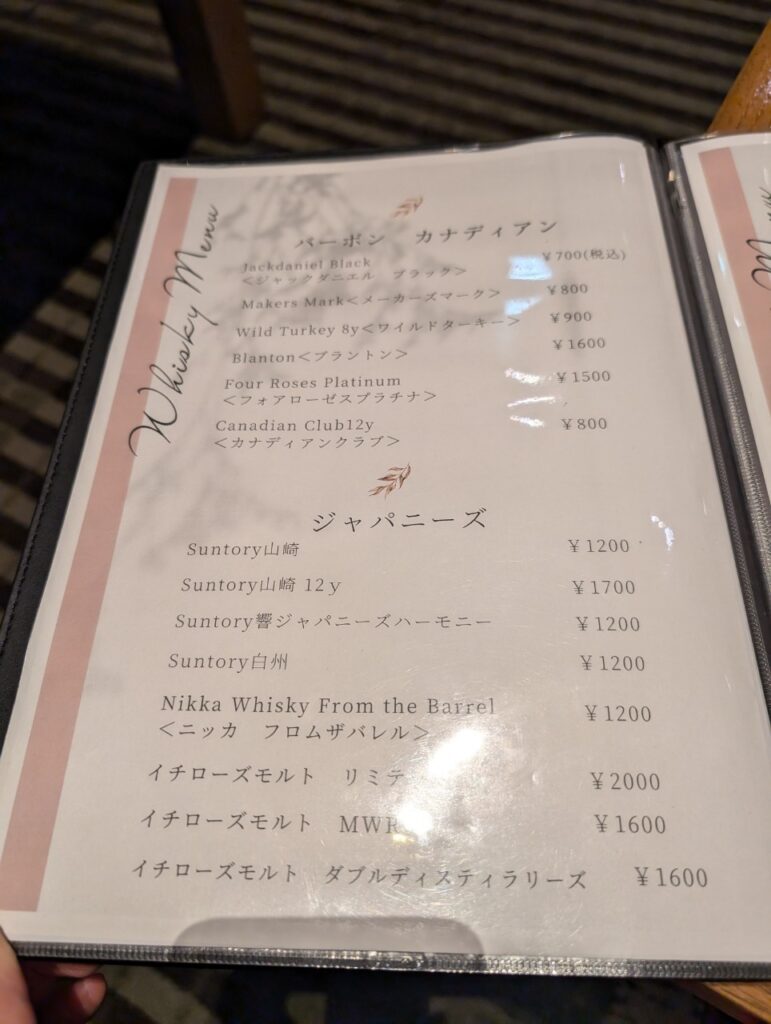 Whisky Menu
バーボン　カナディアン
Jackdaniel Black ￥700(税込)
＜ジャックダニエル　ブラック＞
Makers Mark＜メーカーズマーク＞ ￥800
Wild Turkey 8y＜ワイルドターキー＞ ￥900
Blanton＜ブラントン＞ ￥1600
Four Roses Platinum ￥1500
＜フォアローゼスプラチナ＞
Canadian Club12y ￥800
＜カナディアンクラブ＞
ジャパニーズ
Suntory山崎 ￥1200
Suntory山崎 12y ￥1700
Suntory響ジャパニーズハーモニー ￥1200
Suntory白州 ￥1200
Nikka Whisky From the Barrel ￥1200
＜ニッカ　フロムザバレル＞
イチローズモルト　リミテ ￥2000
イチローズモルト　MWR ￥1600
イチローズモルト　ダブルディスティラリーズ ￥1600